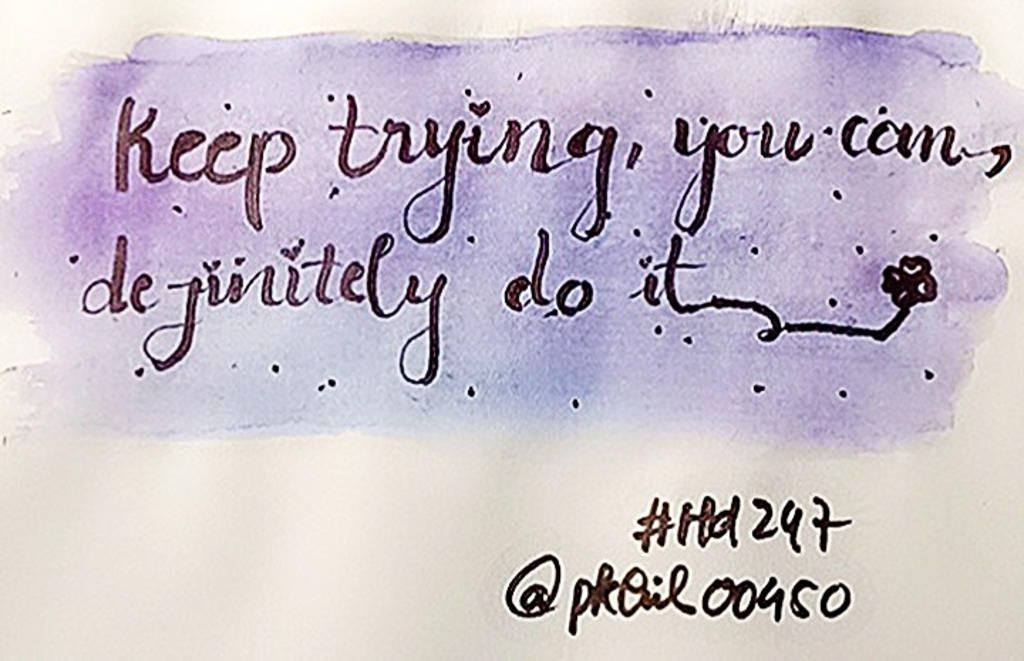 Keep trying, you can,
definitely do it
#Hd247